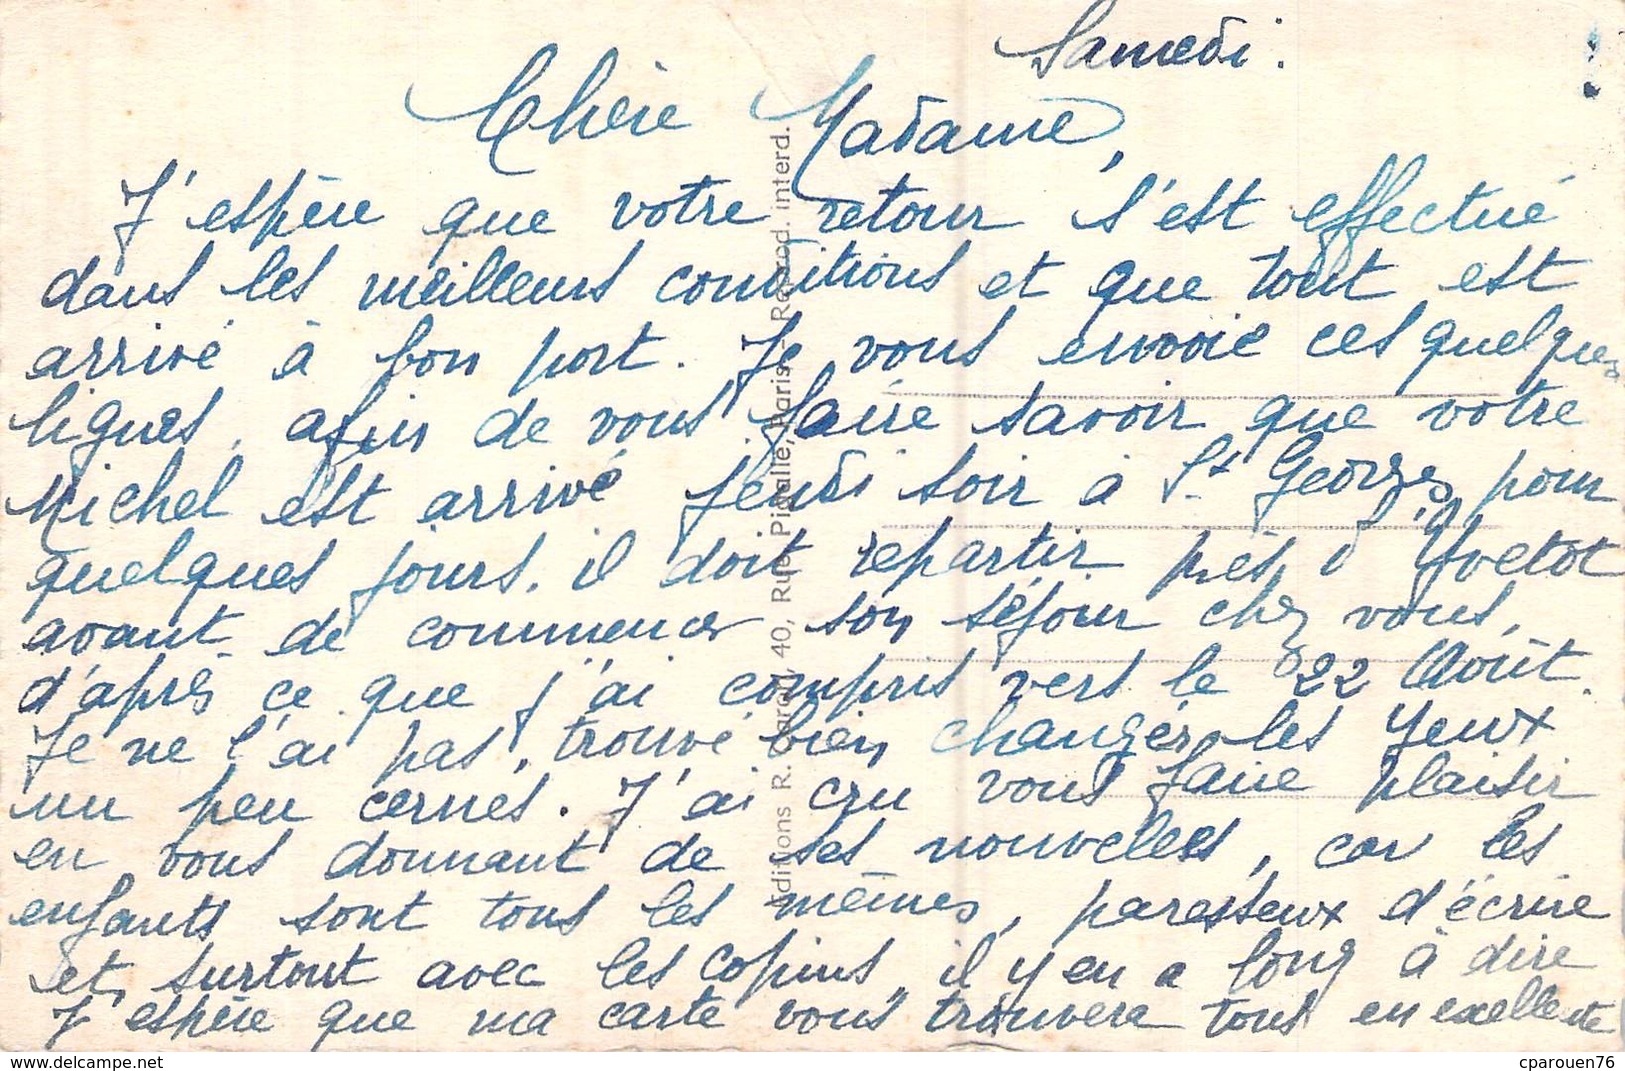 Samedi.
Chère Madame,
J'espère que votre retour s'est effectué
dans les meilleurs conditions et que tout est
arrivé à bon port. Je vous envoie ces quelques
lignes, afin de vous faire savoir que votre
Michel est arrivé jeudi soir à St Georges pour
quelques jours. il doit repartir près d'Yvetot
avant de commencer son séjour chez vous,
d'après ce que j'ai compris vers le 22 Août.
Je ne l'ai pas, trouvé bien changér, les yeux
un peu cernés. J'ai cru vous faire plaisir
en vous donnant de ses nouvelles, car les
enfants sont tous les mêmes, paresseux d'écrire
et surtout avec les copins, il y en a long à dire
J'espère que ma carte vous trouvera tous en exellente
Editions R. 40, Rue Pigalle, Paris. Reprod. interd.
delcampe.net
cparouen76